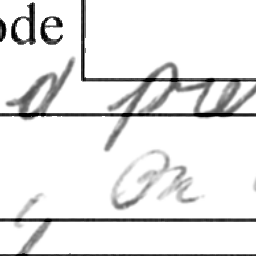 ode
d pre
, on